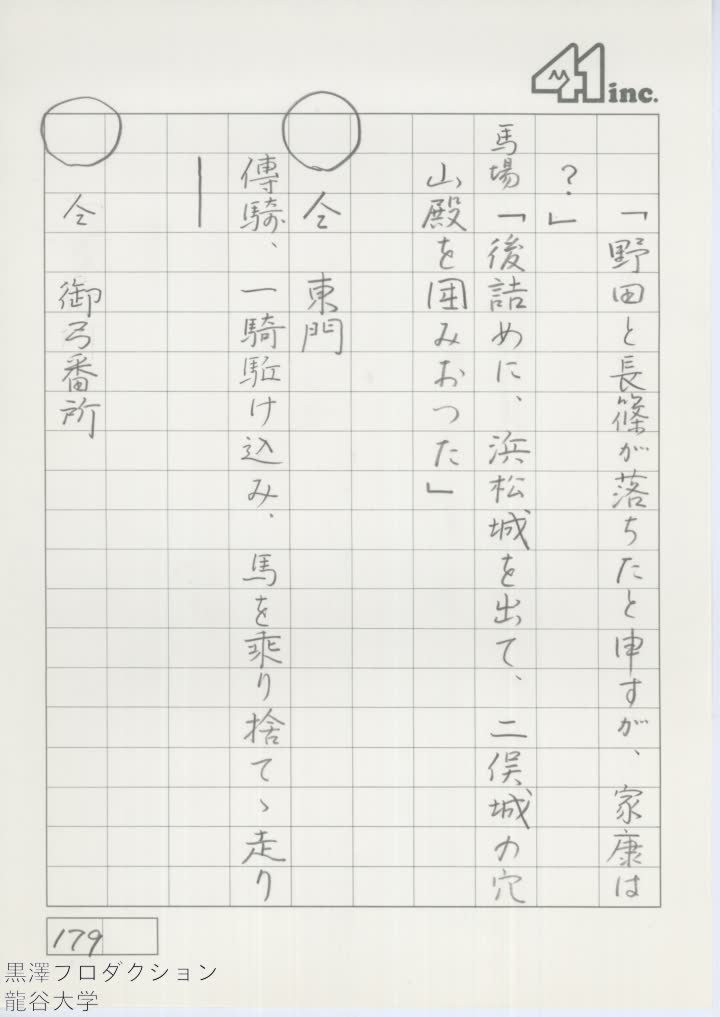 41 inc.
「野田と長篠が落ちたと申すが、家康は
？」
馬場「後詰めに、浜松城を出て、二俣城の穴
山殿を囲みおつた」
○仝　東門
傳騎、一騎駈け込み、馬を乗り捨てゝ走り
―
○仝　御弓番所
179
黒澤プロダクション
龍谷大学